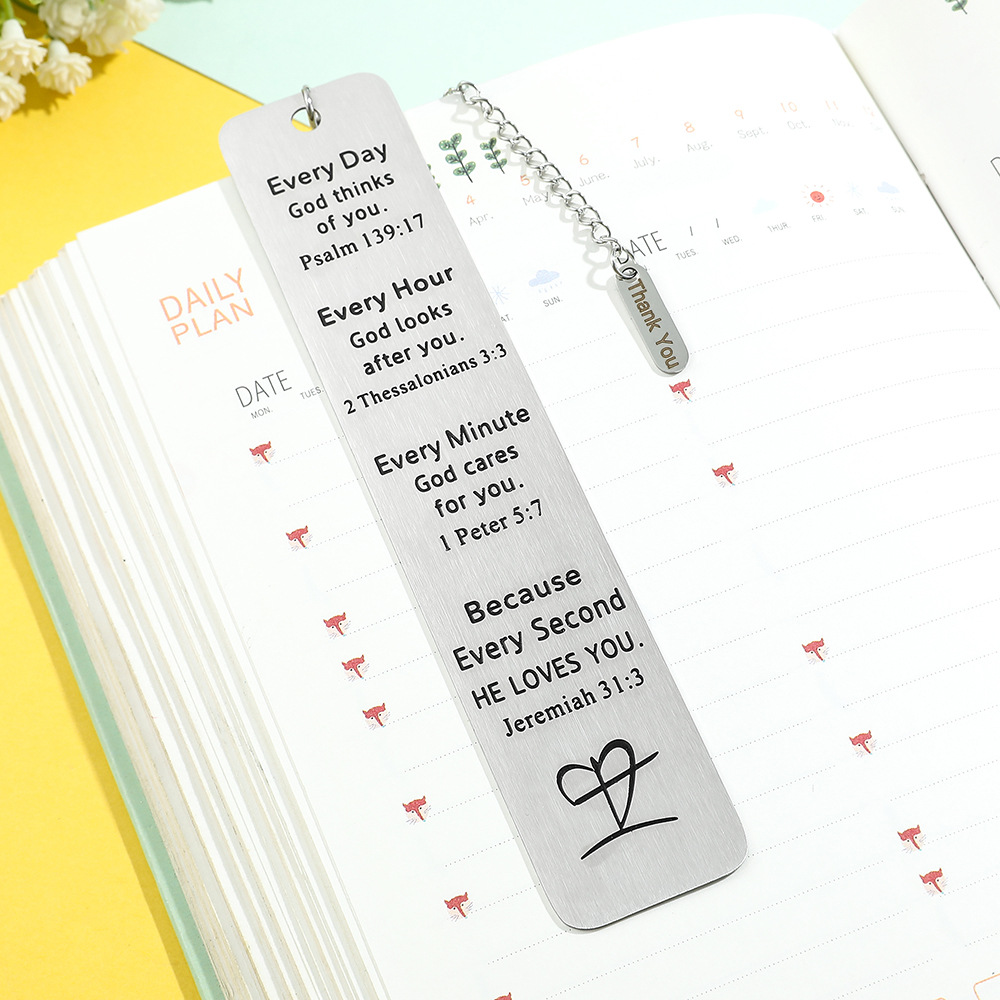 Every Day
God thinks
of you.
Psalm 139:17
Every Hour
God looks
after you.
2 Thessalonians 3:3
Every Minute
God cares
for you.
1 Peter 5:7
Because
Every Second
HE LOVES YOU.
Jeremiah 31:3
Thank You
DAILY
PLAN
DATE
MON.
TUES.
SAT.
SUN.
4
5
6
7
8
9
10
11
Apr.
May
June.
July.
Aug.
Sept.
Oct.
Nov.
DATE / /
TUES.
WED.
THUR.
FRI.
SAT.
SUN.